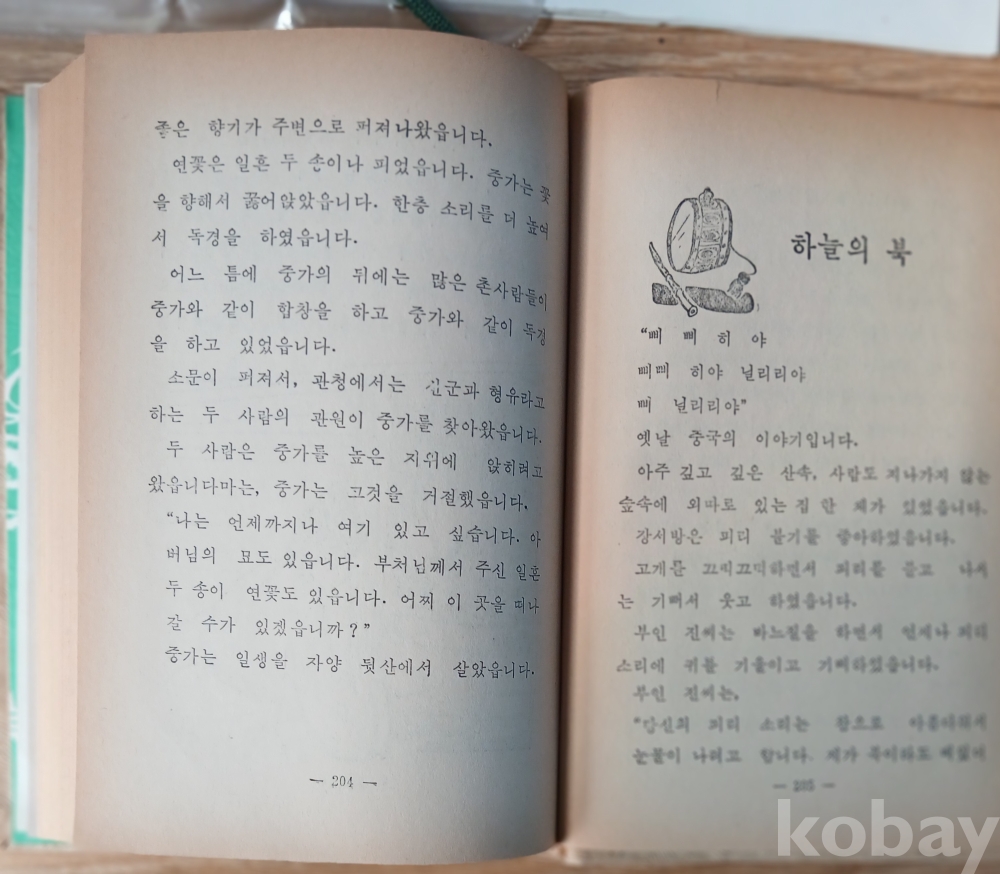 좋은 향기가 주변으로 퍼져나왔읍니다.
연꽃은 일흔 두 송이나 피었읍니다. 중가는 꽃
을 향해서 꿇어앉았읍니다. 한층 소리를 더 높여
서 독경을 하였읍니다.
어느 틈에 중가의 뒤에는 많은 촌사람들이
중가와 같이 합창을 하고 중가와 같이 독경
을 하고 있었읍니다.
소문이 퍼져서, 관청에서는 진군과 형유라고
하는 두 사람의 관원이 중가를 찾아왔읍니다.
두 사람은 중가를 높은 지위에 앉히려고
왔읍니다마는, 중가는 그것을 거절했읍니다.
“나는 언제까지나 여기 있고 싶습니다. 아
버님의 묘도 있읍니다. 부처님께서 주신 일흔
두 송이 연꽃도 있읍니다. 어찌 이 곳을 떠나
갈 수가 있겠읍니까?”
중가는 일생을 자양 뒷산에서 살았읍니다.
— 204 —
하늘의 북
“삐 삐 히 야
삐삐 히야 닐리리야
삐 닐리리야”
옛날 중국의 이야기입니다.
아주 깊고 깊은 산속, 사람도 지나가지 않는
숲속에 외따로 있는 집 한 채가 있었읍니다.
강서방은 피리 불기를 좋아하였읍니다.
고개를 끄떡끄떡하면서 피리를 불고 나서
는 기뻐서 웃고 하였읍니다.
부인 진씨는 바느질을 하면서 언제나 피리
소리에 귀를 기울이고 기뻐하였읍니다.
부인 진씨는,
“당신의 피리 소리는 참으로 아름다워서
눈물이 나려고 합니다. 제가 죽이라도
— 205 —
kobay